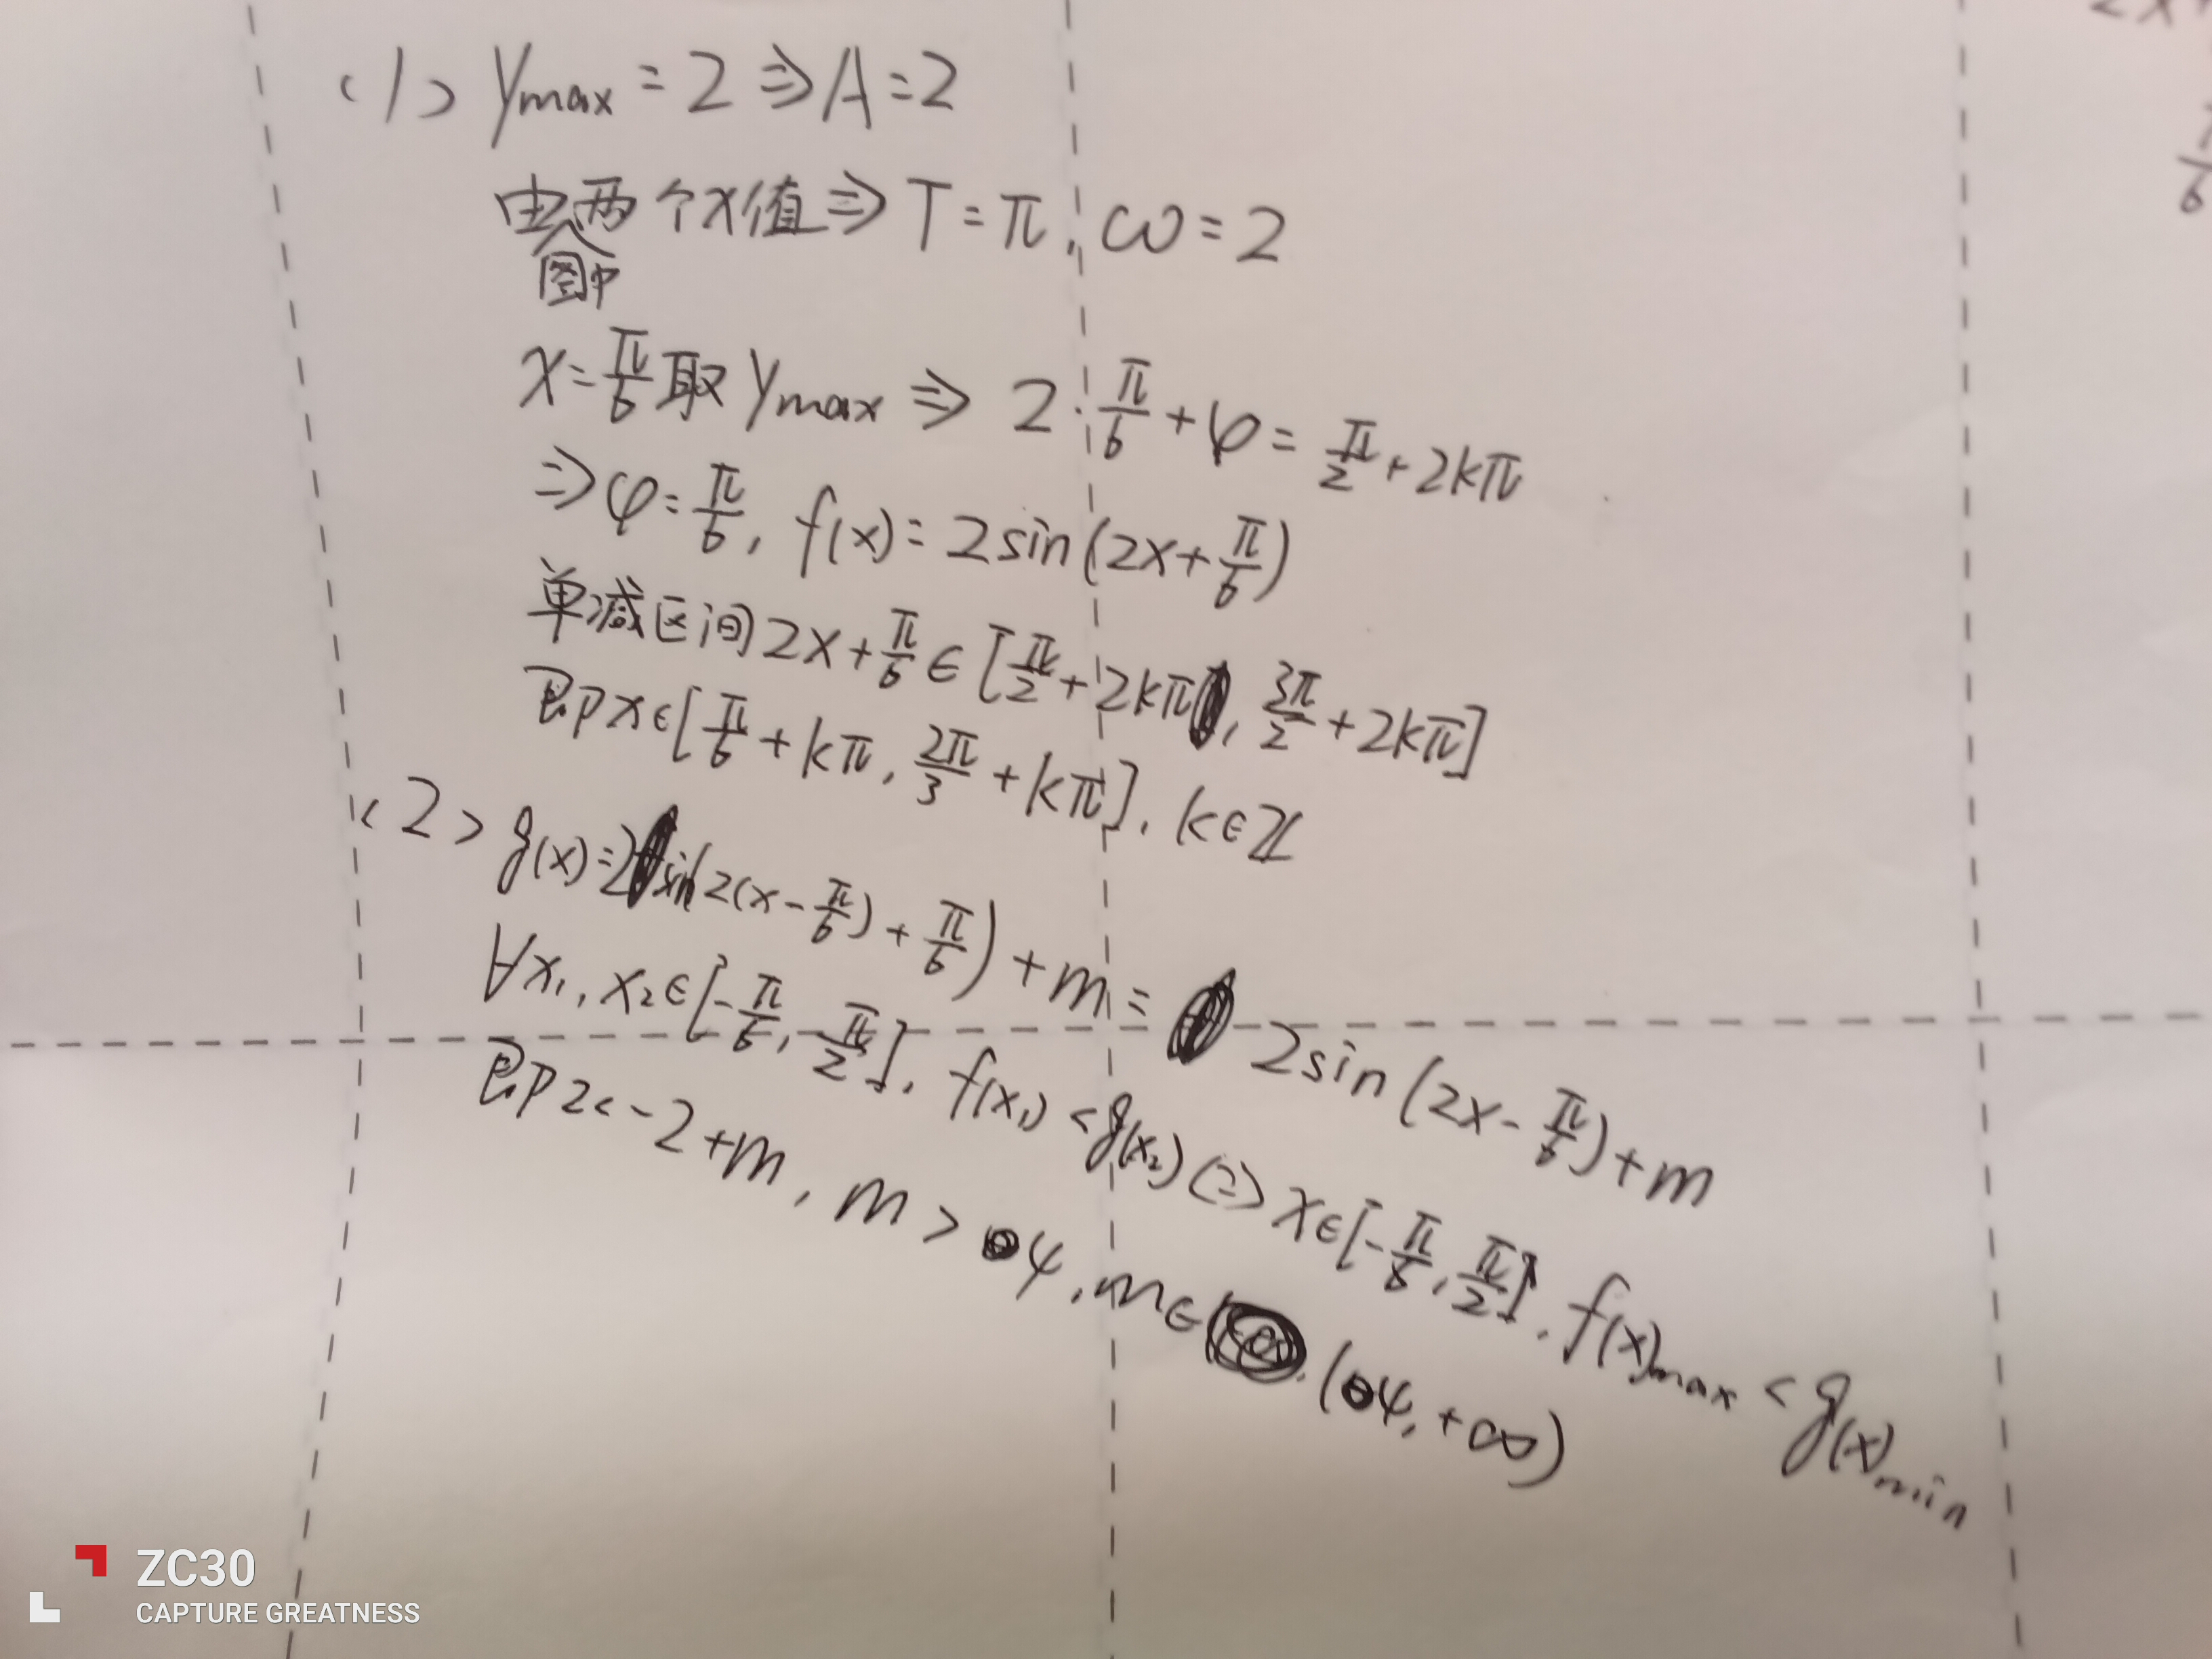 (1) ymax = 2 ⇒ A = 2
由图中两个x值 ⇒ T = π, ω = 2
x = π/6 取 ymax ⇒ 2·π/6 + φ = π/2 + 2kπ
⇒ φ = π/6, f(x) = 2sin(2x + π/6)
单减区间 2x + π/6 ∈ [π/2 + 2kπ, 3π/2 + 2kπ]
即 x ∈ [π/6 + kπ, 2π/3 + kπ], k ∈ Z
(2) g(x) = 2sin(2(x - π/6) + π/6) + m = 2sin(2x - π/6) + m
∀x₁, x₂ ∈ [-π/6, π/2], f(x₁) < g(x₂) ⇔ x ∈ [-π/6, π/2], f(x)max < g(x)min
即 2 < -2 + m, m > 4, m ∈ (4, +∞)
ZC30
CAPTURE GREATNESS